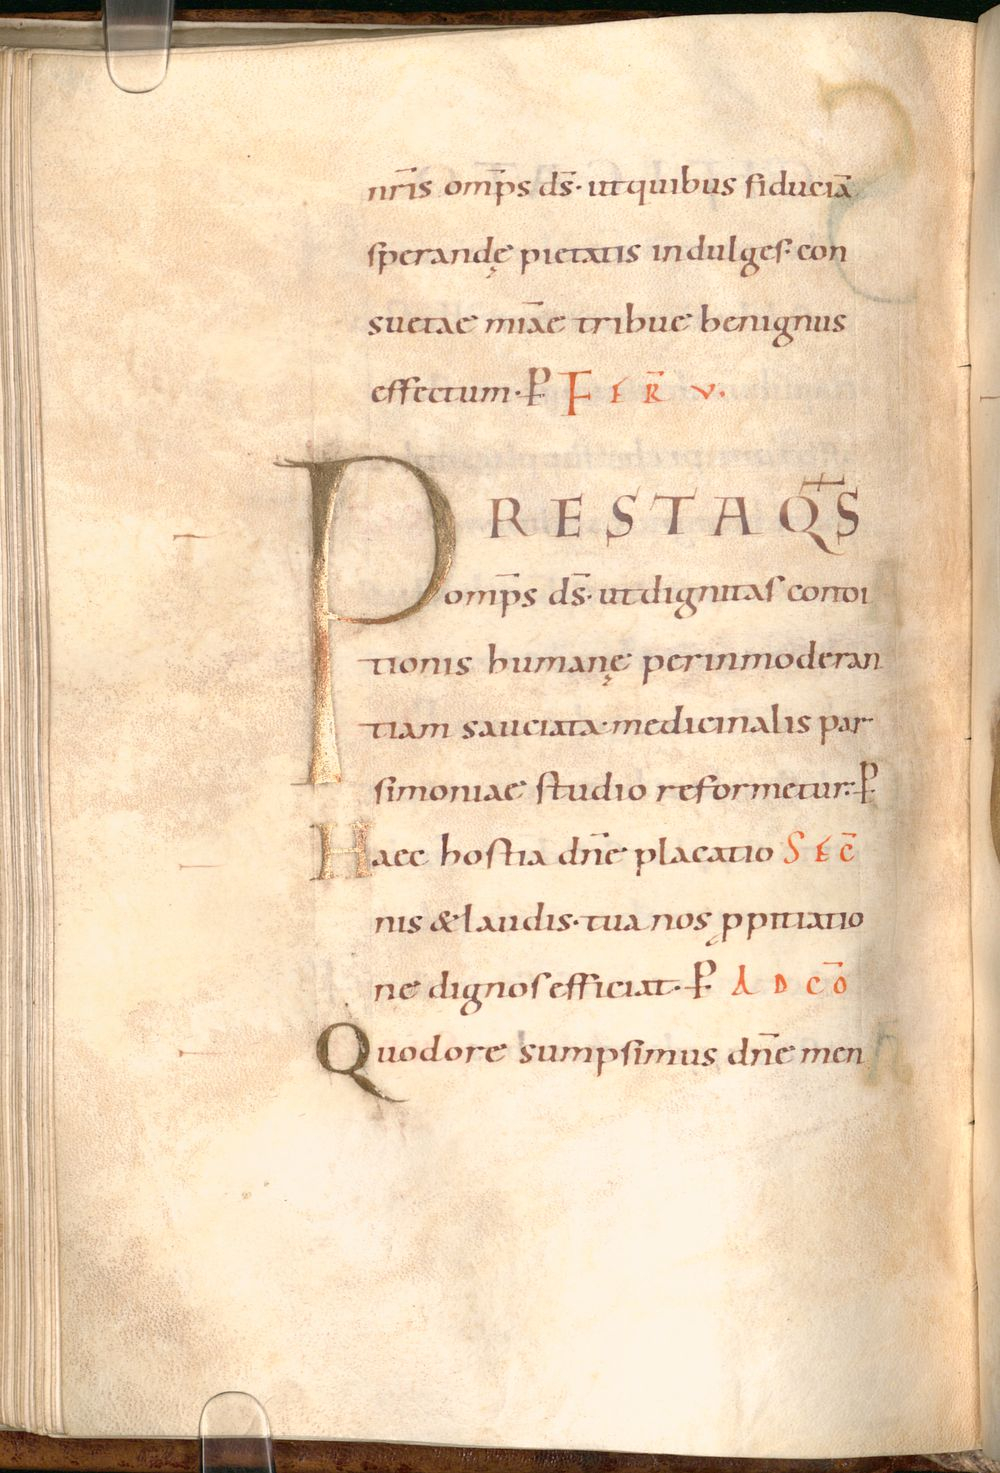 nr̄is om̄ps ds̄· ut quibus fiduciā
sperandę pietatis indulges· con
suetae miāe tribue benignus
effectum· P̶ FER̄ V·
PRESTA Q̄S
om̄ps ds̄· ut dignitas condi
tionis humanę per inmoderan
tiam sauciata· medicinalis par
simoniae studio reformetur·: P̶
Haec hostia dn̄e placatio SEC̄
nis & laudis· tua nos ꝓpitiatio
ne dignos efficiat· P̶ AD CŌ
Quod ore sumpsimus dn̄e men